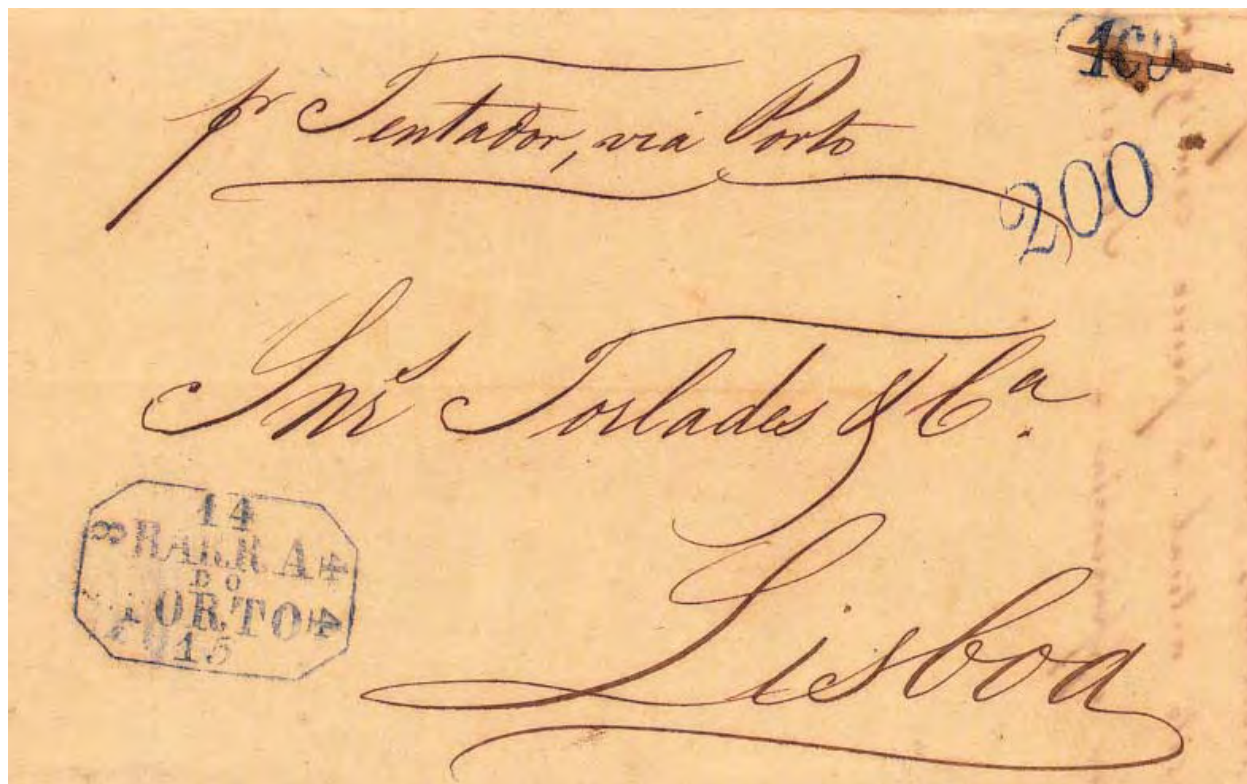 160
pr Tentador, viá Porto
200
Snrs Torlades & Ca.
Lisboa
14
8 BARRA 44
DO
PORTO
15